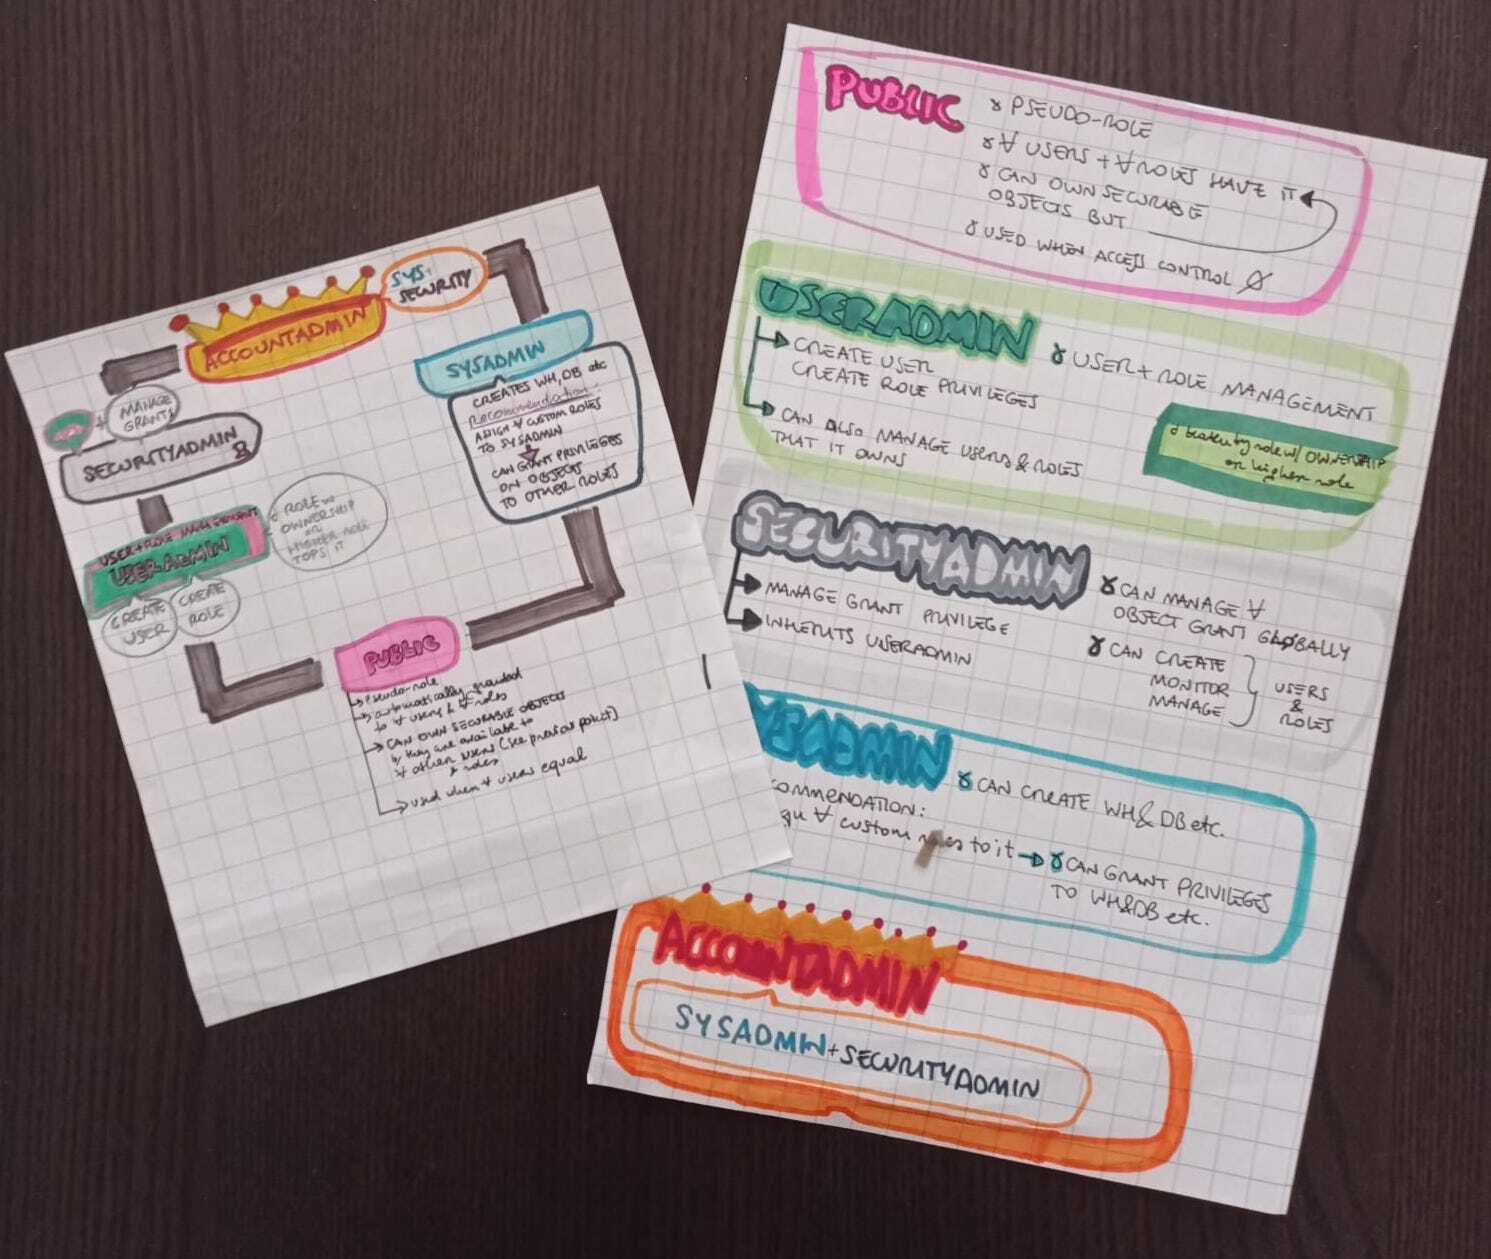 SYS+
SECURITY
ACCOUNTADMIN
SYSADMIN
CREATES WH, DB etc
Recommendation:
ASSIGN ∀ CUSTOM ROLES
TO SYSADMIN
CAN GRANT PRIVILEGES
ON OBJECTS
TO OTHER ROLES
+ MANAGE
GRANTS
SECURITYADMIN
USER+ROLE MANAGEMENT
USERADMIN
ROLE w
OWNERSHIP
on
HIGHER ROLE
TOPS IT
CREATE
USER
CREATE
ROLE
PUBLIC
Pseudo-role
automatically granted
to ∀ users & ∀ roles
CAN OWN SECURABLE OBJECTS
they are available to
∀ other users (see previous point)
& roles
used when ∀ users equal
PUBLIC
PSEUDO-ROLE
∀ USERS + ∀ ROLES HAVE IT
CAN OWN SECURABLE
OBJECTS BUT
USED WHEN ACCESS CONTROL Ø
USERADMIN
CREATE USER
CREATE ROLE PRIVILEGES
CAN ALSO MANAGE USERS & ROLES
THAT IT OWNS
USER + ROLE MANAGEMENT
role w/ OWNERSHIP
on higher role
SECURITYADMIN
MANAGE GRANT PRIVILEGE
INHERITS USERADMIN
CAN MANAGE ∀
OBJECT GRANT GLOBALLY
CAN CREATE
MONITOR
MANAGE
USERS
&
ROLES
YSADMIN
CAN CREATE WH & DB etc.
COMMENDATION:
∀ custom roles to it
CAN GRANT PRIVILEGES
TO WH&DB etc.
ACCOUNTADMIN
SYSADMIN+SECURITYADMIN